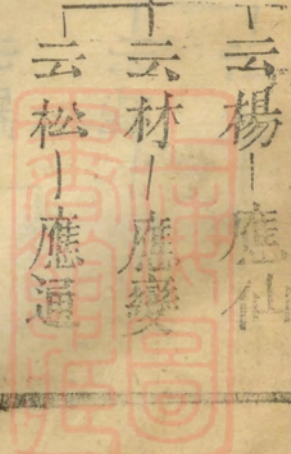 云楊 應仙
云林 應變
云松 應通